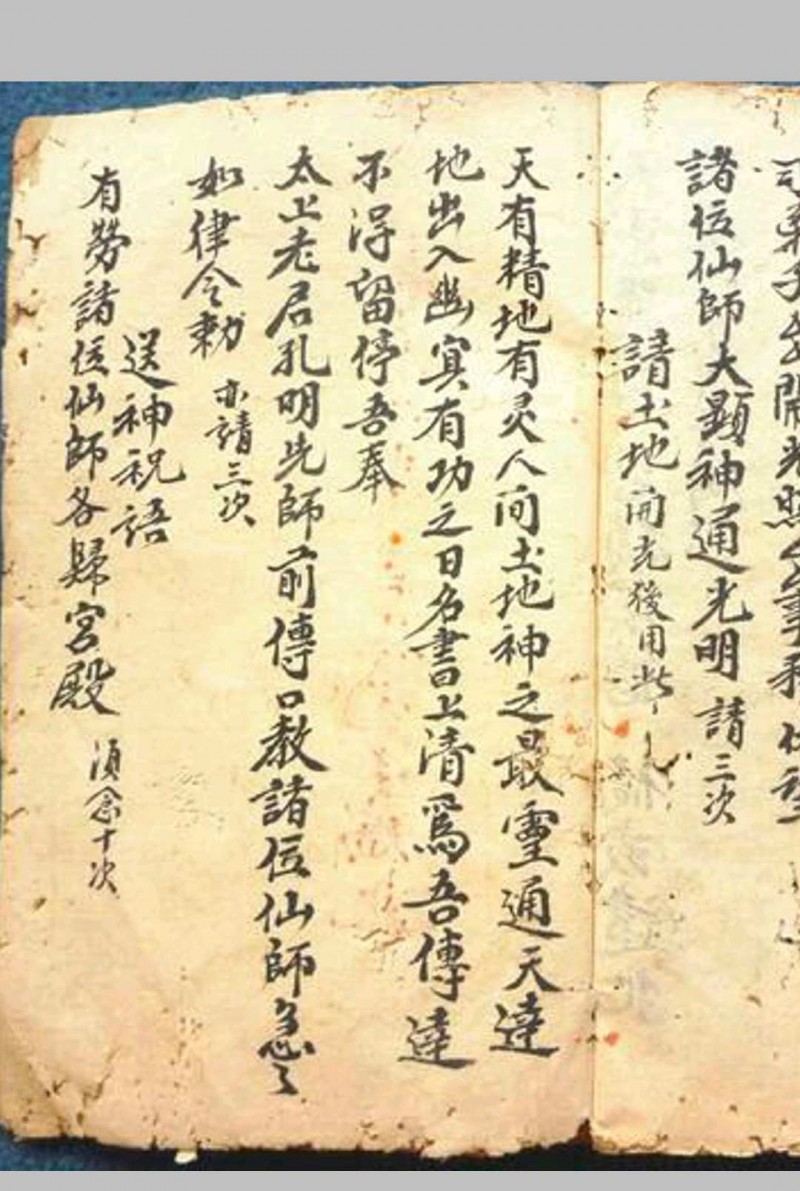 弟子
諸位仙師大顯神通光明請三次
請土地開光後用此
天有精地有灵人间土地神之最靈通天達
地出入幽冥有功之日名書上清爲吾傳達
不淂留停吾奉
太上老君孔明先師前傳口教諸位仙師急々
如律令勅亦請三次
送神祝語
有勞諸位仙師各歸宮殿須念十次